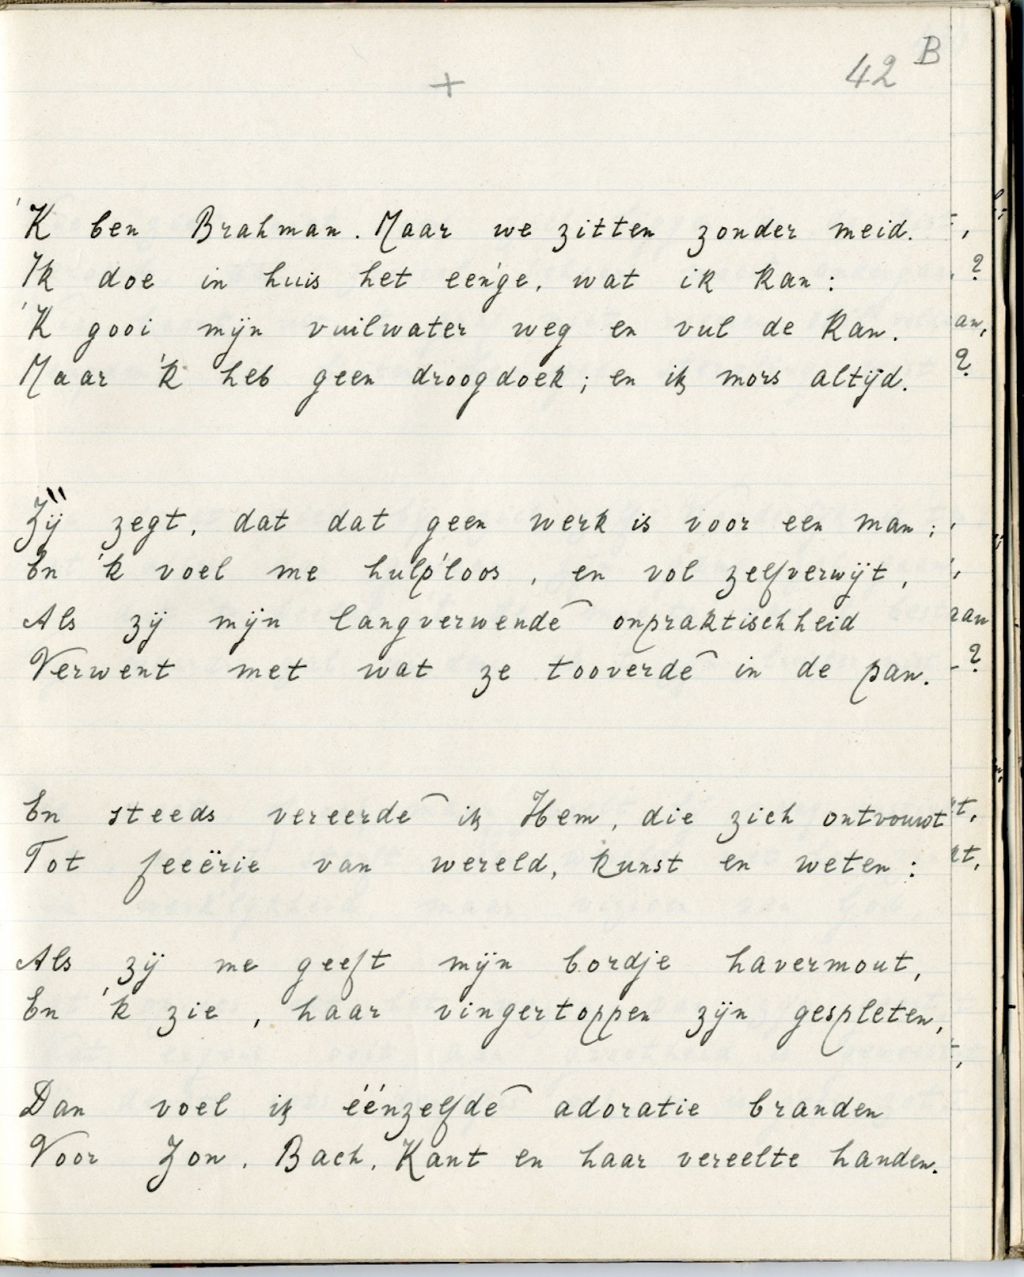 + 42 B
'K ben Brahman. Maar we zitten zonder meid.
Ik doe in huis het een'ge, wat ik kan:
'K gooi mijn vuilwater weg en vul de kan.
Maar 'k heb geen droogdoek; en ik mors altijd.
Zij zegt, dat dat geen werk is voor een man;
En 'k voel me hulp'loos, en vol zelfverwijt,
Als zij mijn langverwende onpraktischheid
Verwent met wat ze tooverde in de pan.
En steeds vereerde ik Hem, die zich ontvouwt
Tot feeërie van wereld, kunst en weten:
Als zij me geeft mijn bordje havermout,
En 'k zie, haar vingertoppen zijn gespleten,
Dan voel ik éénzelfde adoratie branden
Voor Zon, Bach, Kant en haar vereelte handen.